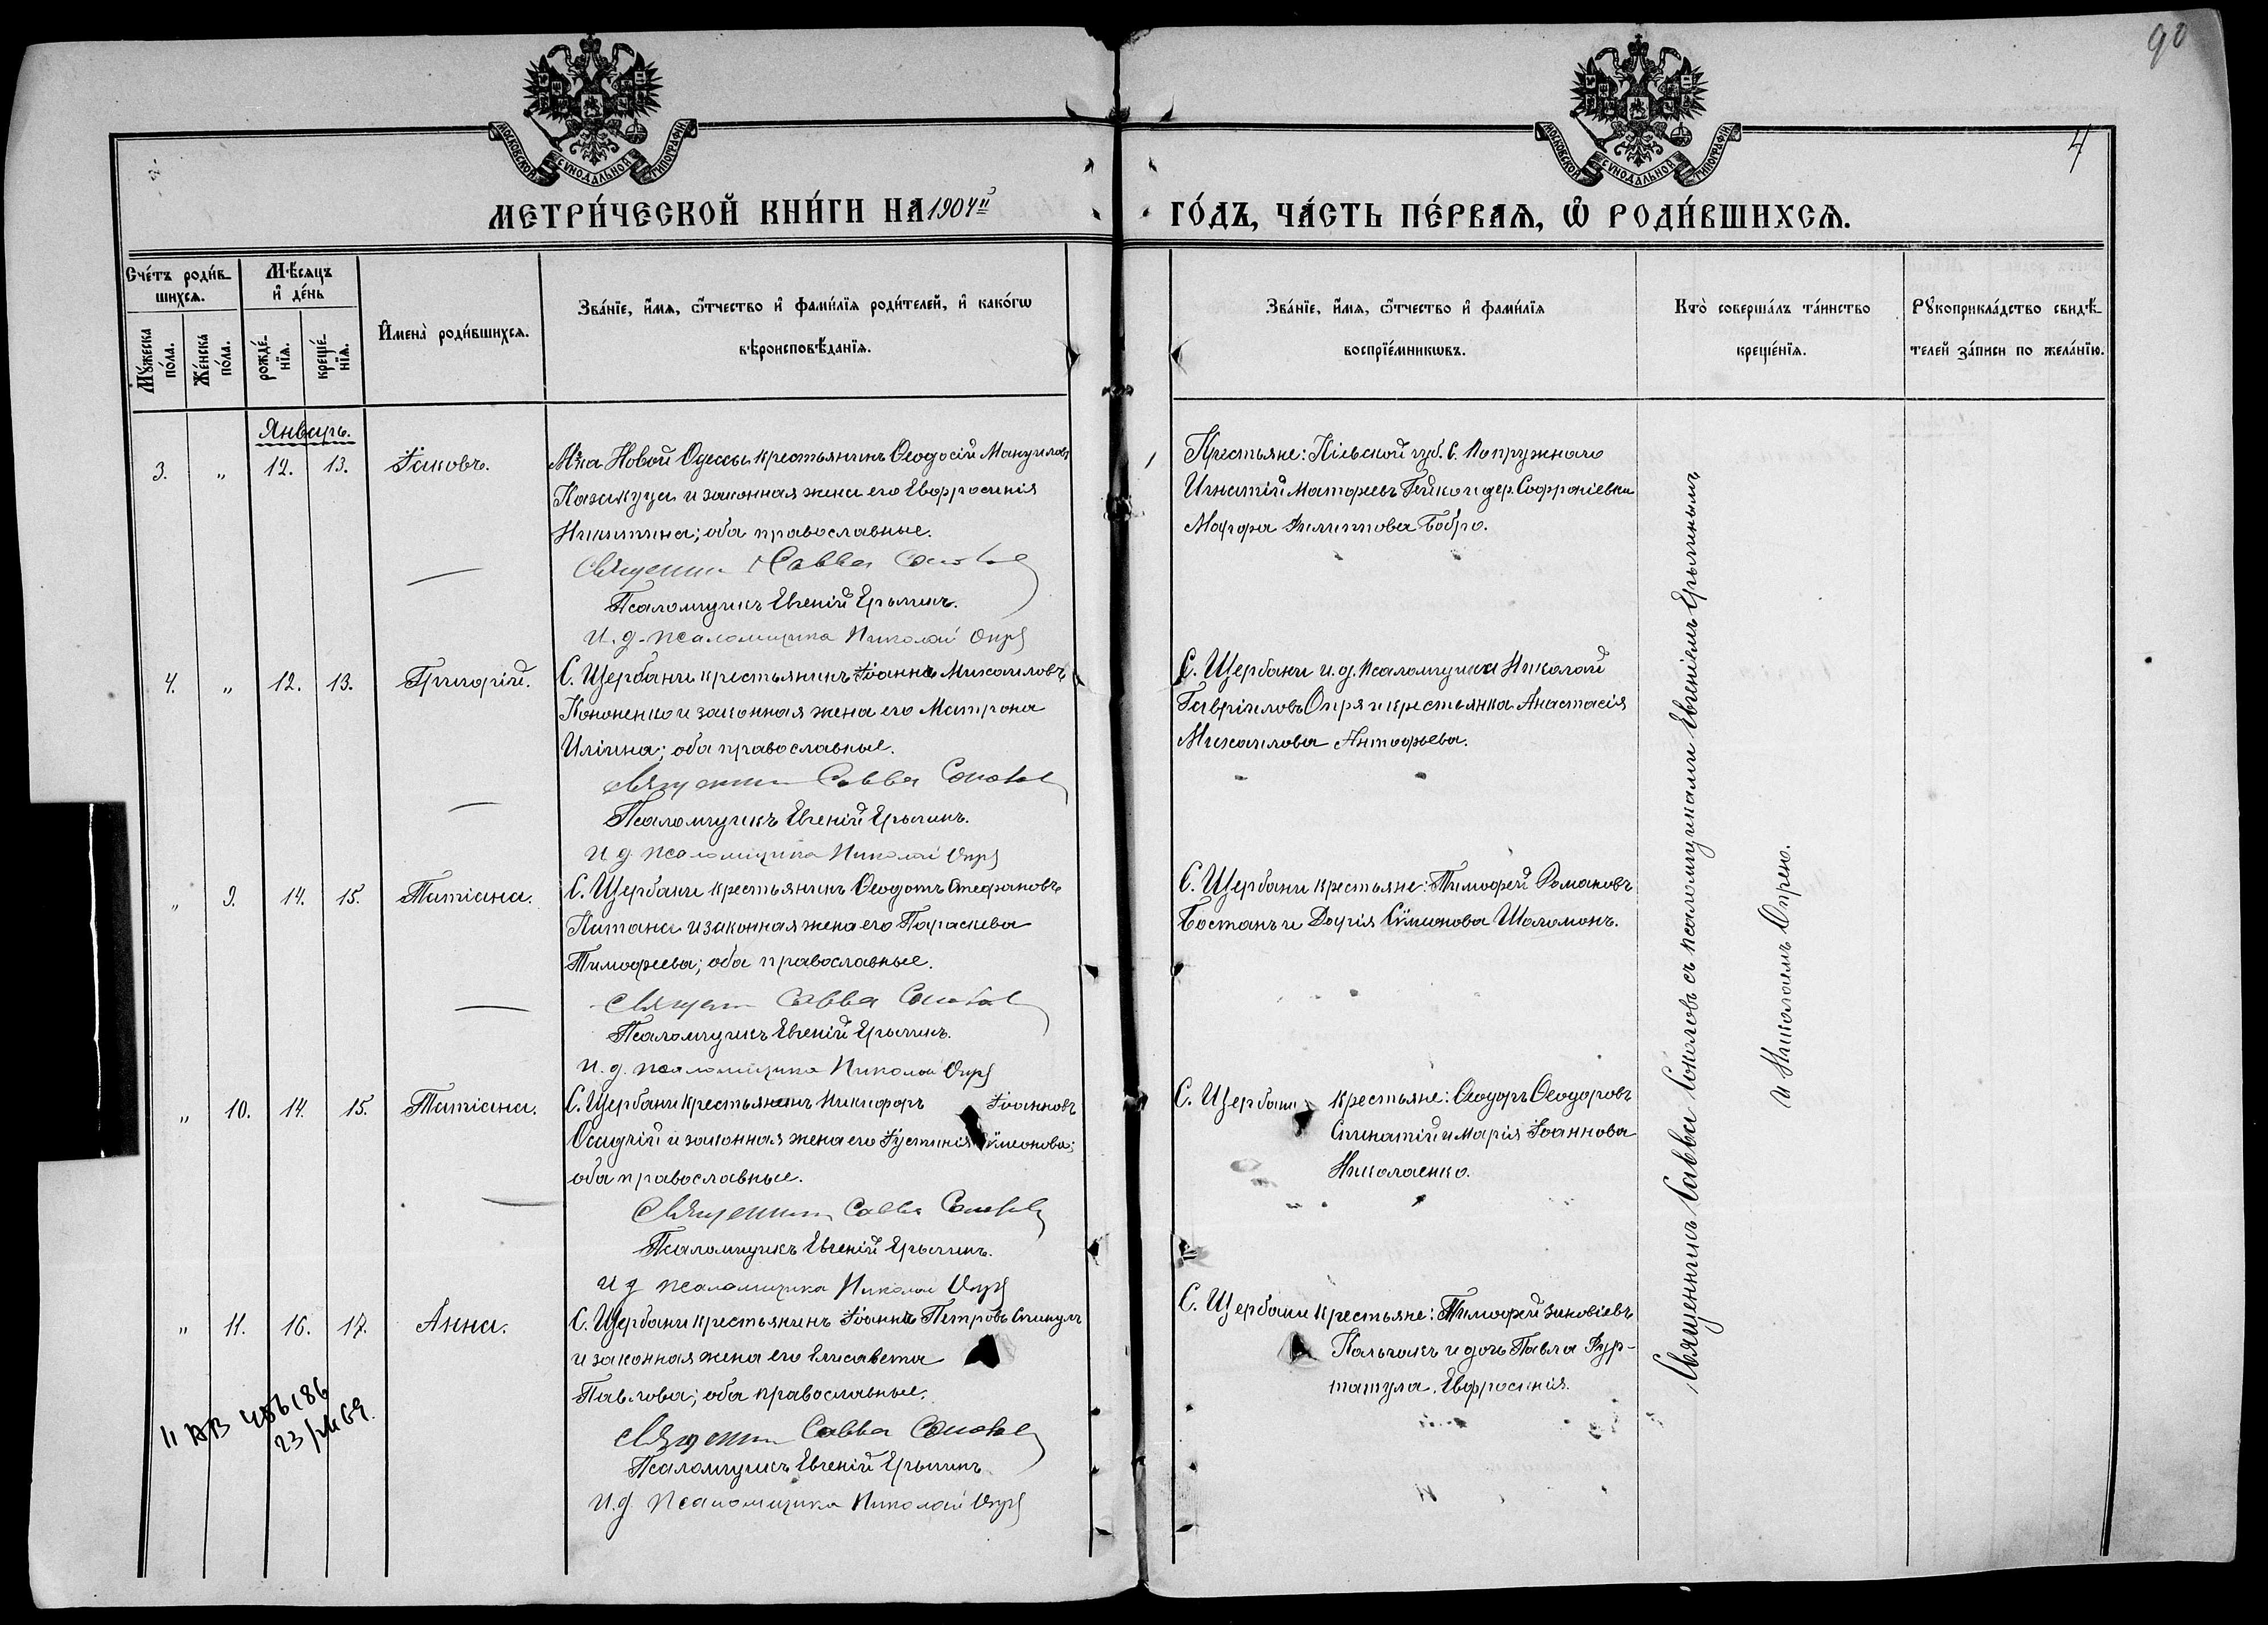 90
4
МОСКОВСКОЙ СѴНОДАЛЬНОЙ ТИПОГРАФІИ
МОСКОВСКОЙ СѴНОДАЛЬНОЙ ТИПОГРАФІИ
МЕТРИ́ЧЕСКОЙ КНИ́ГИ НА 1904й
ГО́ДЪ, ЧА́СТЬ ПЕ́РВАѦ, Ѿ РОДИ́ВШИХСѦ.
Сче́тъ роди́в-
шихсѧ.
Мꙋ́жеска
по́ла.
Же́нска
по́ла.
Мѣ́сяцъ
и҆ де́нь
рожде́-
нїѧ.
креще́-
нїѧ.
И҆мена̀ роди́вшихсѧ.
Зва́нїе, и҆́мѧ, ѻ҆́тчество и҆ фами́лїѧ роди́телей, и҆ како́гѡ
вѣроисповѣ́данїѧ.
Зва́нїе, и҆́мѧ, ѻ҆́тчество и҆ фами́лїѧ
воспрїе́мникѡвъ.
Кто̀ соверша́лъ та́инство
креще́нїѧ.
Рꙋкоприкла́дство свидѣ́-
телей за́писи по жела́нїю.
Январь.
3. „ 12. 13. Іаковъ.
М-ка Новой Одессы крестьянинъ Ѳеодосій Мануиловъ
Казакуца и законная жена его Евфросинія
Никитина; оба православные.
Священн Савва Соколов
Псаломщикъ Евгеній Ерыминъ.
И. д. псаломщика Николай Опря
Крестьяне: Кіевской губ. С. Попружнаго
Игнатій Матѳеевъ Гейко и дер. Софроніевки
Марфа Филиппова Бобро.
4. „ 12. 13. Григорій.
С. Щербани крестьянинъ Іоаннъ Михаиловъ
Кононенко и законная жена его Матрона
Иліина; оба православные.
Священни Савва Соколов
Псаломщикъ Евгеній Ерыминъ.
И д. псаломщика Николай Опря
С. Щербани и. д. псаломщика Николай
Гавріиловъ Опря и крестьянка Анастасія
Михаилова Антофьева.
„ 9. 14. 15. Татіана.
С. Щербани крестьянинъ Ѳеодотъ Стефановъ
Китана и законная жена его Параскева
Тимоѳеева; оба православные.
Священ Савва Соколов
Псаломщикъ Евгеній Ерыминъ.
И. д. псаломщика Николай Опря
С. Щербани крестьяне: Тимоѳей Романовъ
Бостанъ и Дарія Сѵмеонова Шаломонъ.
„ 10. 14. 15. Татіана.
С. Щербани крестьянинъ Никифоръ Іоанновъ
Осадчій и законная жена его Іустинія Сѵмеонова;
оба православные.
Священник Савва Соколов
Псаломщикъ Евгеній Ерыминъ.
И д псаломщика Николай Опря
С. Щербани крестьяне: Ѳеодоръ Ѳеодоровъ
Спинатій и Марія Іоаннова
Николаенко.
„ 11. 16. 17. Анна.
С. Щербани крестьянинъ Іоаннъ Петровъ Спинулъ
и законная жена его Елисавета
Павлова; оба православные.
Священни Савва Соколов
Псаломщикъ Евгеній Ерыминъ
И. д. псаломщика Николай Опря
С. Щербани крестьяне: Тимоѳей Зиновіевъ
Кальчакъ и дочь Павла Фур-
татула, Евфросинія.
Священникъ Савва Соколовъ съ псаломщиками Евгеніемъ Ерыминымъ
и Николаемъ Опрею.